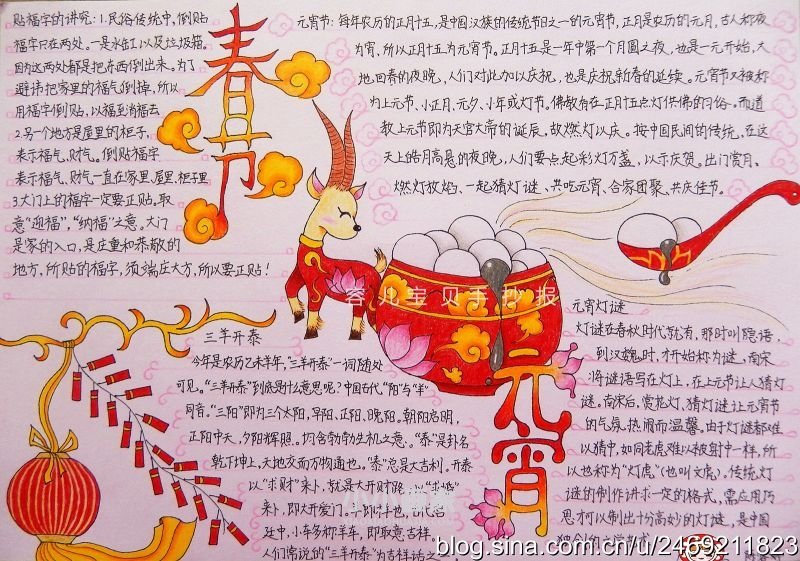 贴福字的讲究：1.民俗传统中，倒贴
福字只在两处。一是水缸以及垃圾箱。
因为这两处都是把东西倒出来。为了
避讳把家里的福气倒掉，所以
用福字倒贴，以福至消福去
2.另一个地方是屋里的柜子，
表示福气，财气。倒贴福字
表示福气，财气一直在家里，屋里，柜子里
3.大门上的福字一定要正贴。取
意“迎福”，“纳福”之意。大门
是家的入口，是庄重和恭敬的
地方，所贴的福字，须端庄大方，所以要正贴！
春节
元宵节：每年农历的正月十五，是中国汉族的传统节日之一的元宵节，正月是农历的元月，古人称夜
为宵，所以正月十五为元宵节。正月十五是一年中第一个月圆之夜，也是一元开始，大
地回春的夜晚，人们对此加以庆祝，也是庆祝新春的延续。元宵节又被称
为上元节、小正月、元夕、小年或灯节，佛教有在正月十五点灯供佛的习俗。而道
教上元节即为天官大帝的诞辰，故燃灯以庆。按中国民间的传统，在这
天上皓月高悬的夜晚，人们要点起彩灯万盏，以示庆贺。出门赏月、
燃灯放焰、一起猜灯谜、共吃元宵、合家团聚、共庆佳节。
容儿宝贝手抄报
三羊开泰
今年是农历乙未羊年，“三羊开泰”一词随处
可见。“三羊开泰”到底是什么意思呢？中国古代，“阳”与“羊”
同音。“三阳”即为三个太阳，早阳、正阳、晚阳。朝阳启明，
正阳中天，夕阳辉照。均含勃勃生机之意。“泰”是卦名
乾下坤上，天地交而万物通也。“泰”总是大吉利，开泰
以“求财”来卜，就是大开财路。以“求婚”
来卜，即大开爱门。羊即祥也，古代宫
廷中，小车多称羊车，即取意吉祥。
人们常说的“三羊开泰”为吉祥语之一
元宵
元宵灯谜
灯谜在春秋时代就有，那时叫隐语，
到汉魏时，才开始称为谜。南宋
将谜语写在灯上，在上元节让人猜灯
谜。南宋后，赏花灯、猜灯谜让元宵节
的气氛，热闹而温馨。由于灯谜都难
以猜中，如同老虎难以被射中一样，所
以也称为“灯虎”（也叫文虎）。传统灯
谜的制作讲求一定的格式，需应用巧
思才可以制出十分高妙的灯谜，是中国
blog.sina.com.cn/u/2469211823